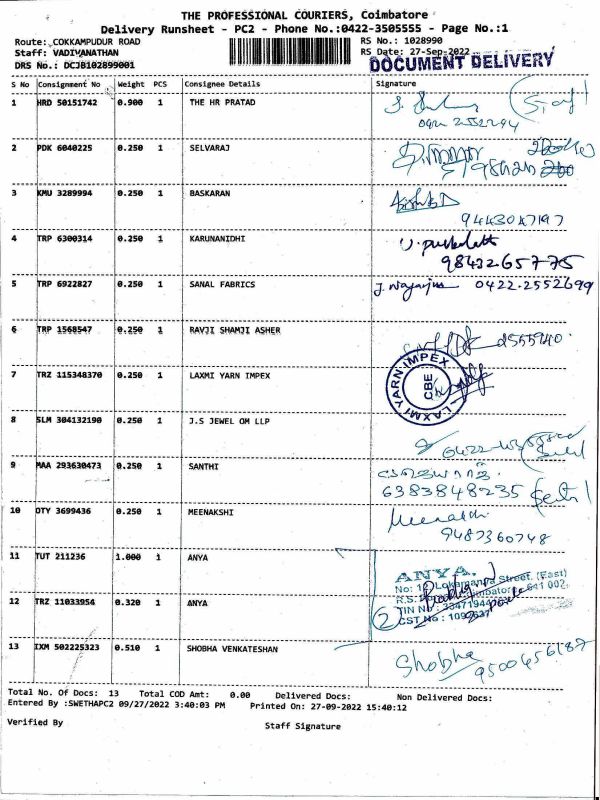 THE PROFESSIONAL COURIERS, Coimbatore
Delivery Runsheet - PC2 - Phone No.:0422-3505555 - Page No.:1
Route: COKKAMPUDUR ROAD RS No.: 1028990
Staff: VADIVANATHAN RS Date: 27-Sep-2022
DRS No.: DCJB102899001 DOCUMENT DELIVERY
S No Consignment No Weight PCS Consignee Details Signature
1 HRD 50151742 0.900 1 THE HR PRATAD
2 PDK 6040225 0.250 1 SELVARAJ
3 KMU 3289994 0.250 1 BASKARAN
9443047197
4 TRP 6300314 0.250 1 KARUNANIDHI
9843265775
5 TRP 6922827 0.250 1 SANAL FABRICS 0422-2552699
6 TRP 1568547 0.250 1 RAVJI SHAMJI ASHER 2555940
7 TRZ 115348370 0.250 1 LAXMI YARN IMPEX
LAXMI YARN IMPEX CBE
8 SLM 304132190 0.250 1 J.S JEWEL OM LLP
9 MAA 293630473 0.250 1 SANTHI
6383848235
10 OTY 3699436 0.250 1 MEENAKSHI Meenakshi
9487360748
11 TUT 211236 1.000 1 ANYA
ANYA.
Street, (East)
641 002.
12 TRZ 11033954 0.320 1 ANYA
2
13 IXM 502225323 0.510 1 SHOBHA VENKATESHAN Shobha
9500456187
Total No. Of Docs: 13 Total COD Amt: 0.00 Delivered Docs: Non Delivered Docs:
Entered By :SWETHAPC2 09/27/2022 3:40:03 PM Printed On: 27-09-2022 15:40:12
Verified By Staff Signature